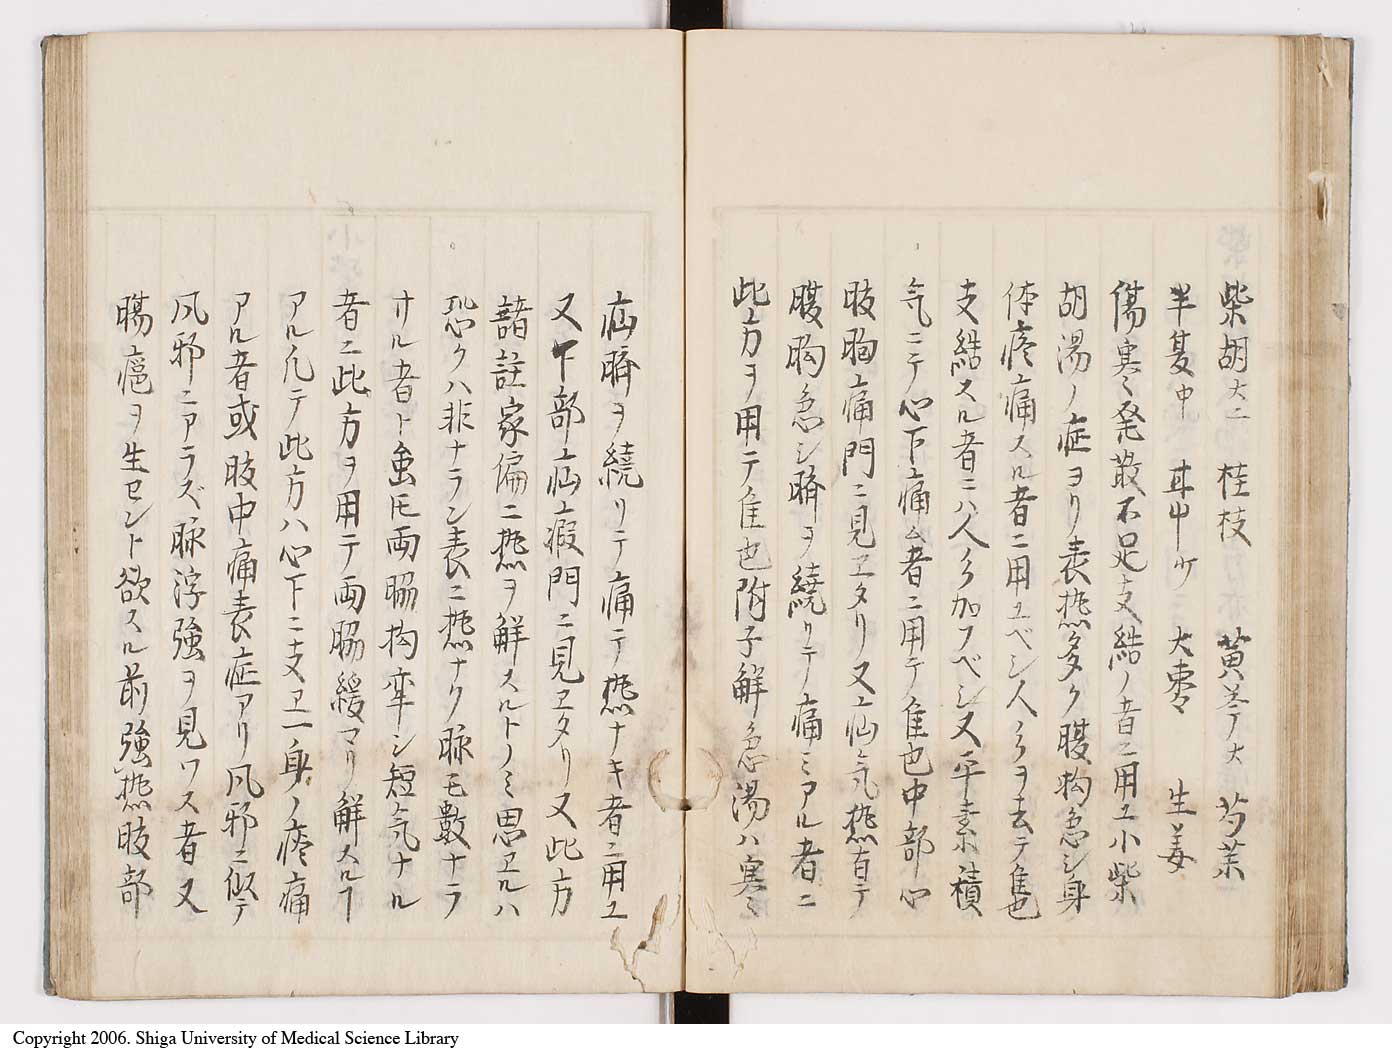 柴胡大二 桂枝 黄芩大 芍薬
半夏中 甘中ケ 大棗々 生姜
傷寒ミ発散不足支結ノ者ニ用ユ小柴
胡湯ノ症ヨリ表熱多ク腹拘急シ身
体疼痛スル者ニ用ユベシ人參ヲ去テ隹也
支結スル者ニハ人參加フベシ又平素積
气ニテ心下痛ム者ニ用テ隹也中部心
肢胸痛門ニ見エタリ又疝気熱有テ
腹胸急シ臍ヲ繞リテ痛ミアル者ニ
此方ヲ用テ隹也附子觧急湯ハ寒ミ
疝臍ヲ繞リテ痛テ熱ナキ者ニ用ユ
又下部疝瘕門ニ見エタリ又此方
諸註家偏ニ熱ヲ觧スルトノミ思エルハ
恐クハ非ナラン表ニ熱ナク脉モ數ナラ
サル者ト虽モ両脇拘牽シ短気ナル
者ニ此方ヲ用テ両脇緩マリ觧スルヿ
アル凡テ此方ハ心下ニ支エ一身ノ疼痛
アル者或肢中痛表症アリ风邪ニ似テ
风邪ニアラズ脉浮強ヲ見ワス者又
腸瘡ヲ生セント欲スル前強熱肢部
Copyright 2006. Shiga University of Medical Science Library